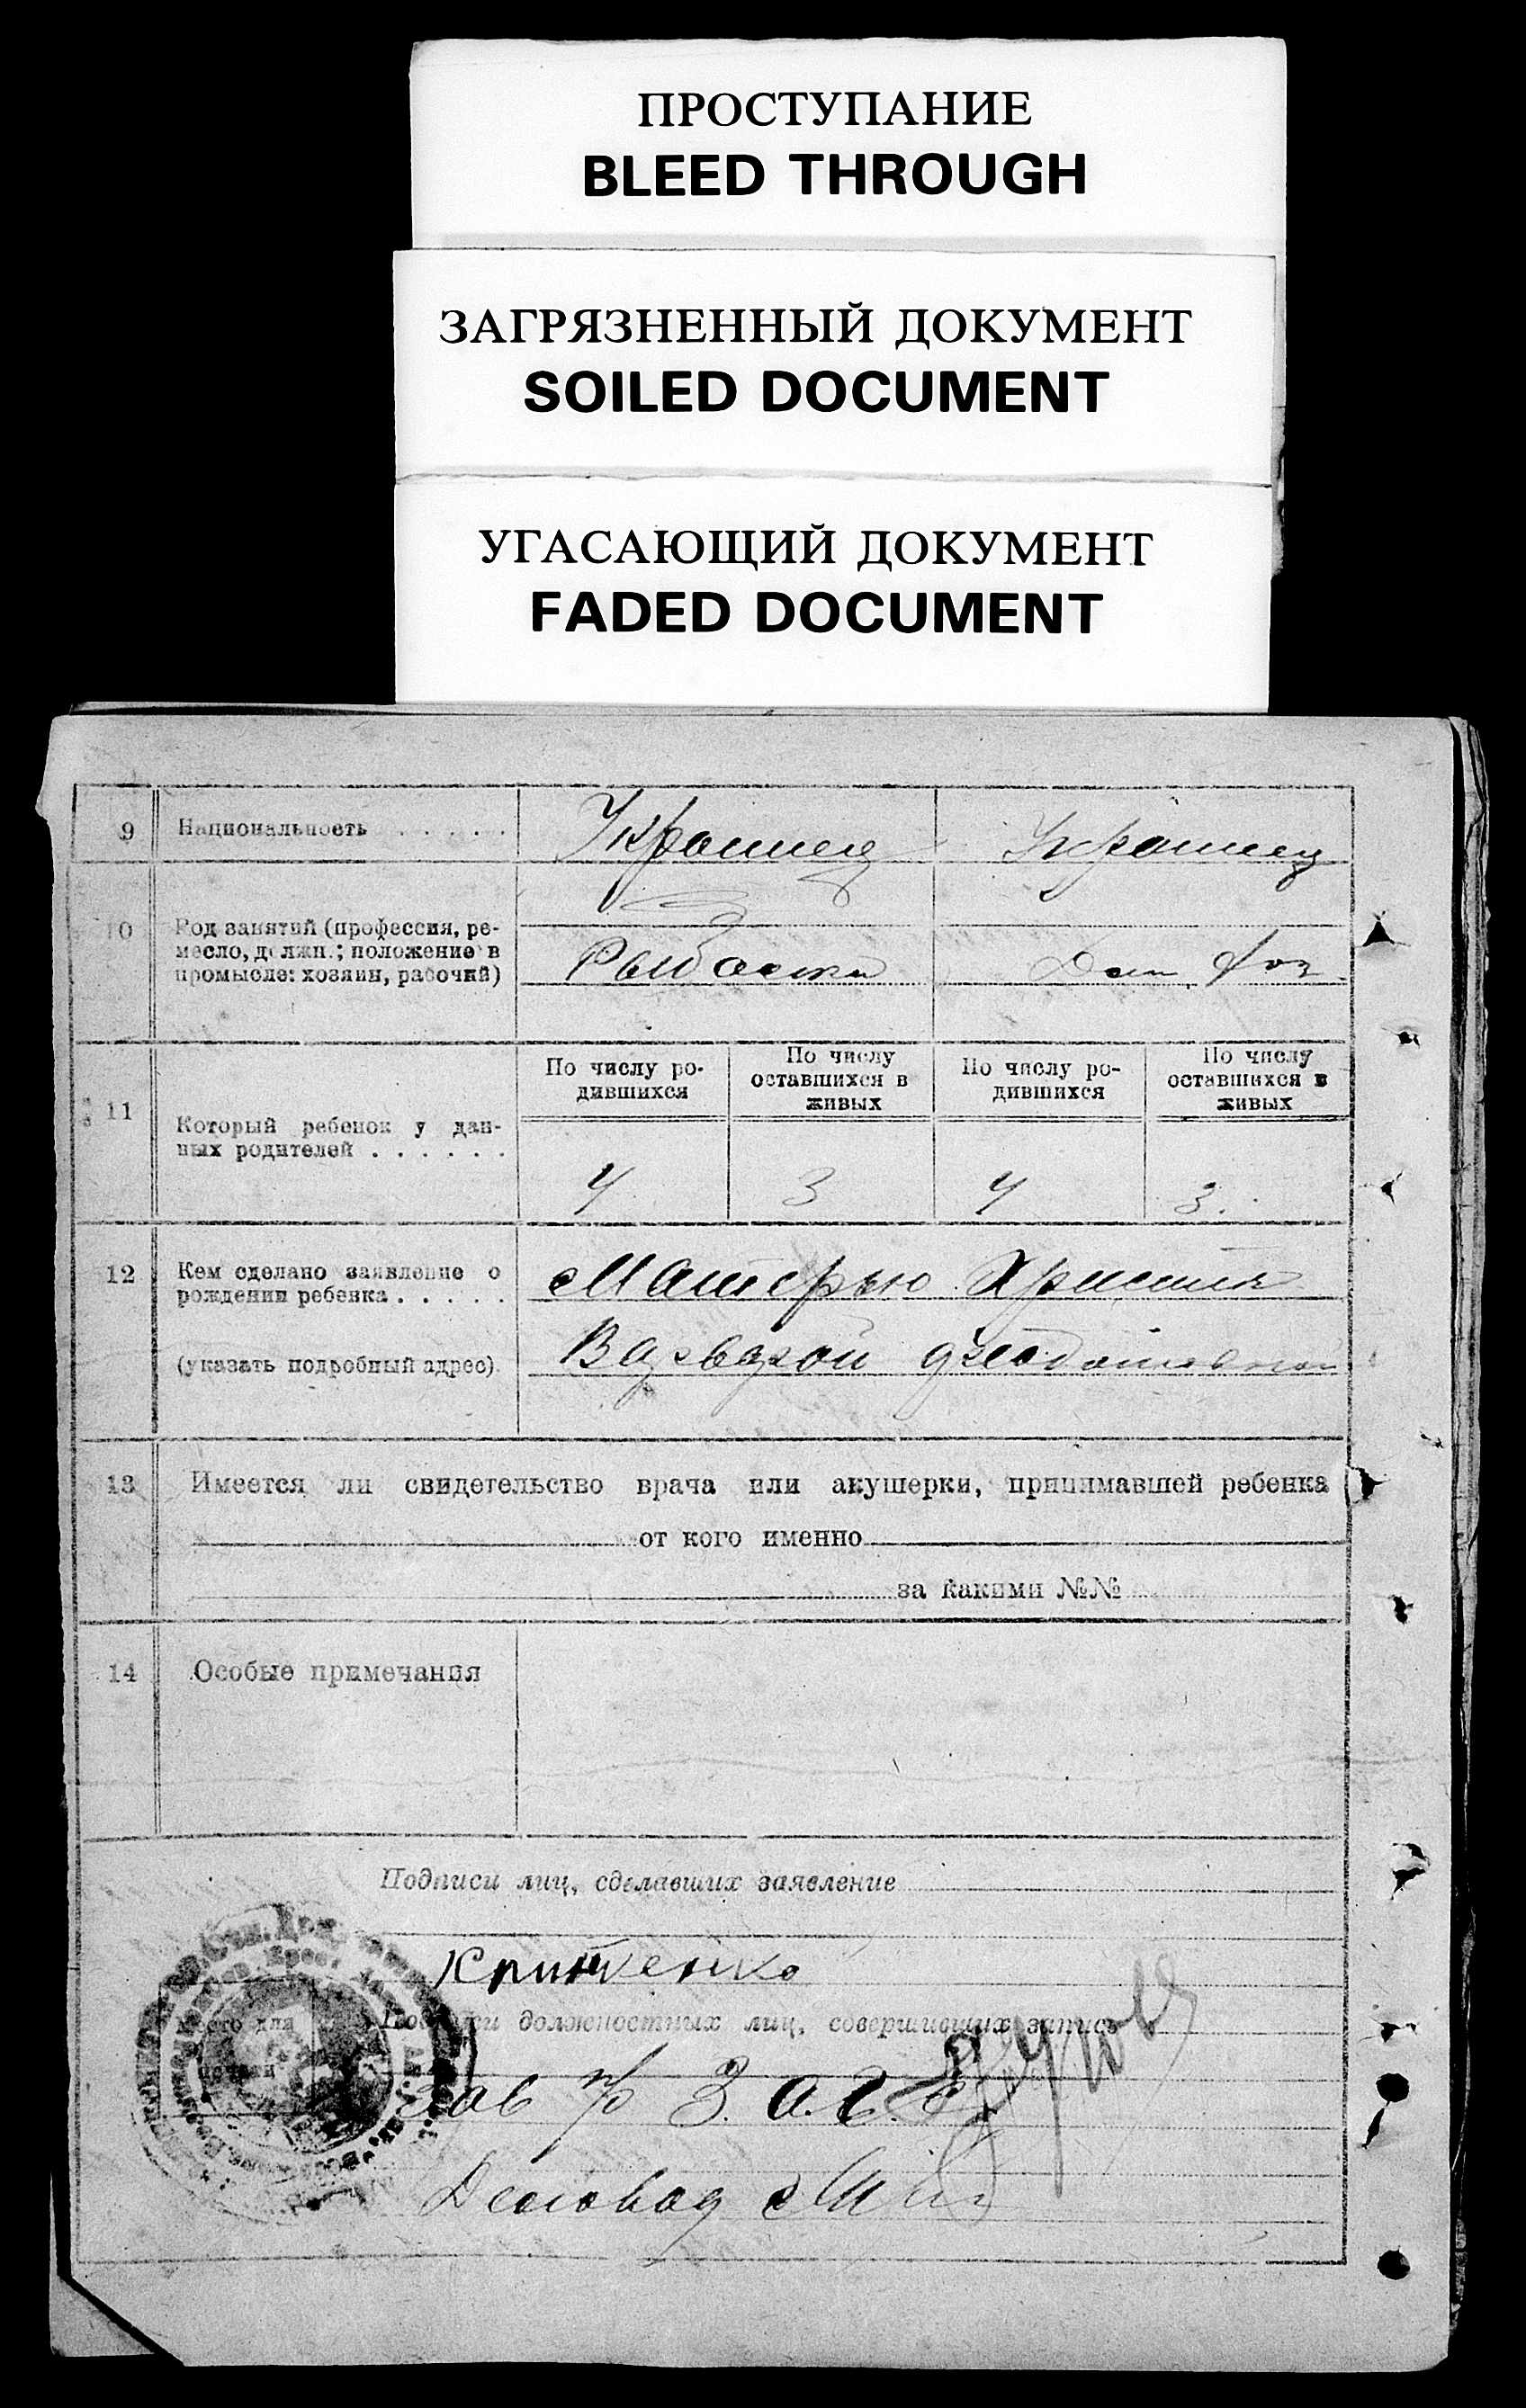 ПРОСТУПАНИЕ
BLEED THROUGH
ЗАГРЯЗНЕННЫЙ ДОКУМЕНТ
SOILED DOCUMENT
УГАСАЮЩИЙ ДОКУМЕНТ
FADED DOCUMENT
9 Национальность . . . . . Украинец Украинец
10 Род занятий (профессия, ре-
месло, должн.; положение в
промысле: хозяин, рабочий)
Рыбалка Дом. хоз.
11 Который ребенок у дан-
ных родителей . . . . . .
По числу ро-
дившихся
По числу
оставшихся в
живых
По числу ро-
дившихся
По числу
оставшихся в
живых
4 3 4 3.
12 Кем сделано заявление о
рождении ребенка . . . . .
(указать подробный адрес).
Матерью
Варварой
13 Имеется ли свидетельство врача или акушерки, принимавшей ребенка
от кого именно
за какими №№
14 Особые примечания
Подписи лиц, сделавших заявление
Место для
печати
Подписи должностных лиц, совершивших запись
Зав
Деловод